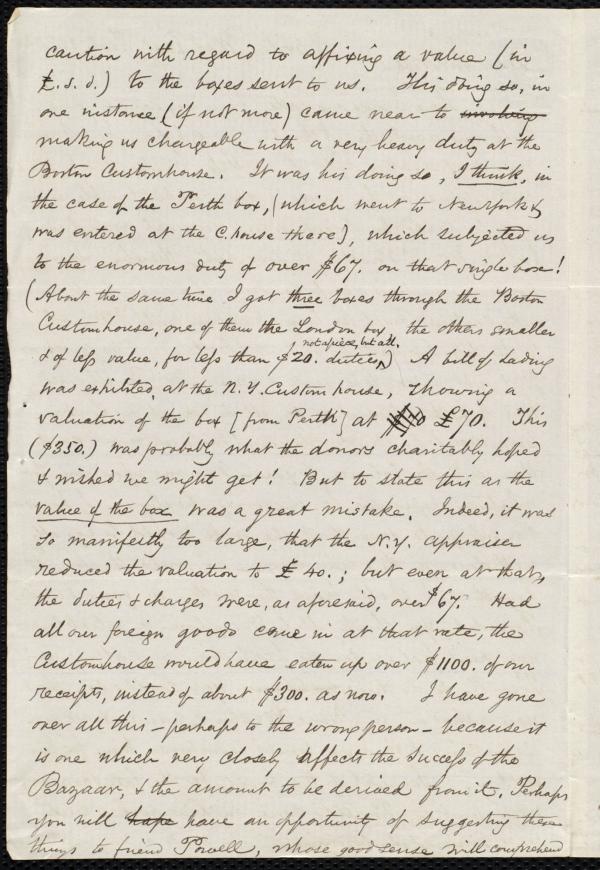 caution with regard to affixing a value (in
£. s. d.) to the boxes sent to us. His doing so, in
one instance (if not more) came near to involving
making us chargeable with a very heavy duty at the
Boston Customhouse. It was his doing so, I think, in
the case of the Perth box, (which went to New York &
was entered at the C. house there), which subjected us
to the enormous duty of over $67. on that single box!
(About the same time I got three boxes through the Boston
Customhouse, one of them the London box, the others smaller
not apiece, but all.
& of less value, for less than $20. duties.) A bill of Lading
was exhibited, at the N. Y. Custom house, showing a
valuation of the box [from Perth] at £70. This
($350.) was probably what the donors charitably hoped
& wished we might get! But to state this as the
value of the box was a great mistake. Indeed, it was
so manifestly too large, that the N. Y. appraiser
reduced the valuation to £40.; but even at that,
the duties & charges were, as aforesaid, over $67. Had
all our foreign goods come in at that rate, the
Customhouse would have eaten up over $1100. of our
receipts, instead of about $300. as now. I have gone
over all this – perhaps to the wrong person – because it
is one which very closely affects the success of the
Bazaar, & the amount to be derived from it. Perhaps
you will hope have an opportunity of suggesting these
things to friend Powell, whose good sense will comprehend